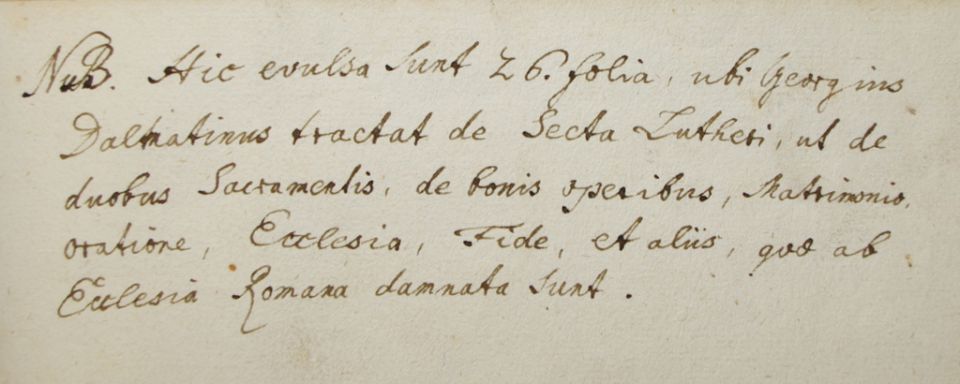 NuB. Hic evulsa sunt 26. folia, ubi Georgius
Dalmatinus tractat de Secta Lutheri, ut de
duobus Sacramentis, de bonis operibus, Matrimonio,
oratione, Ecclesia, Fide, et aliis, quæ ab
Ecclesia Romana damnata sunt.